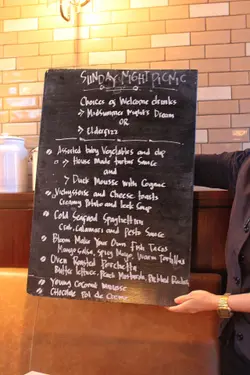 SUNDAY NIGHT PICNIC
Choices of Welcome drinks
→ Midsummer Night's Dream
OR
→ Elderfizz
Assorted baby Vegetables and dip
→ House Made tartar Sauce
and
→ Duck Mousse with Cognac
Vichyssoise and Cheese toasts
Creamy Potato and leek Soup
Cold Seafood Spaghettini
Crab, Calamari and Pesto Sauce
Bloom Make Your Own Fish Tacos
Mango Salsa, Spicy Mayo, Warm Tortillas
Oven Roasted Porchetta
Butter lettuce, Peach Mustarda, Pickled
Young Coconut Mousse
Chocolate Pot de Creme